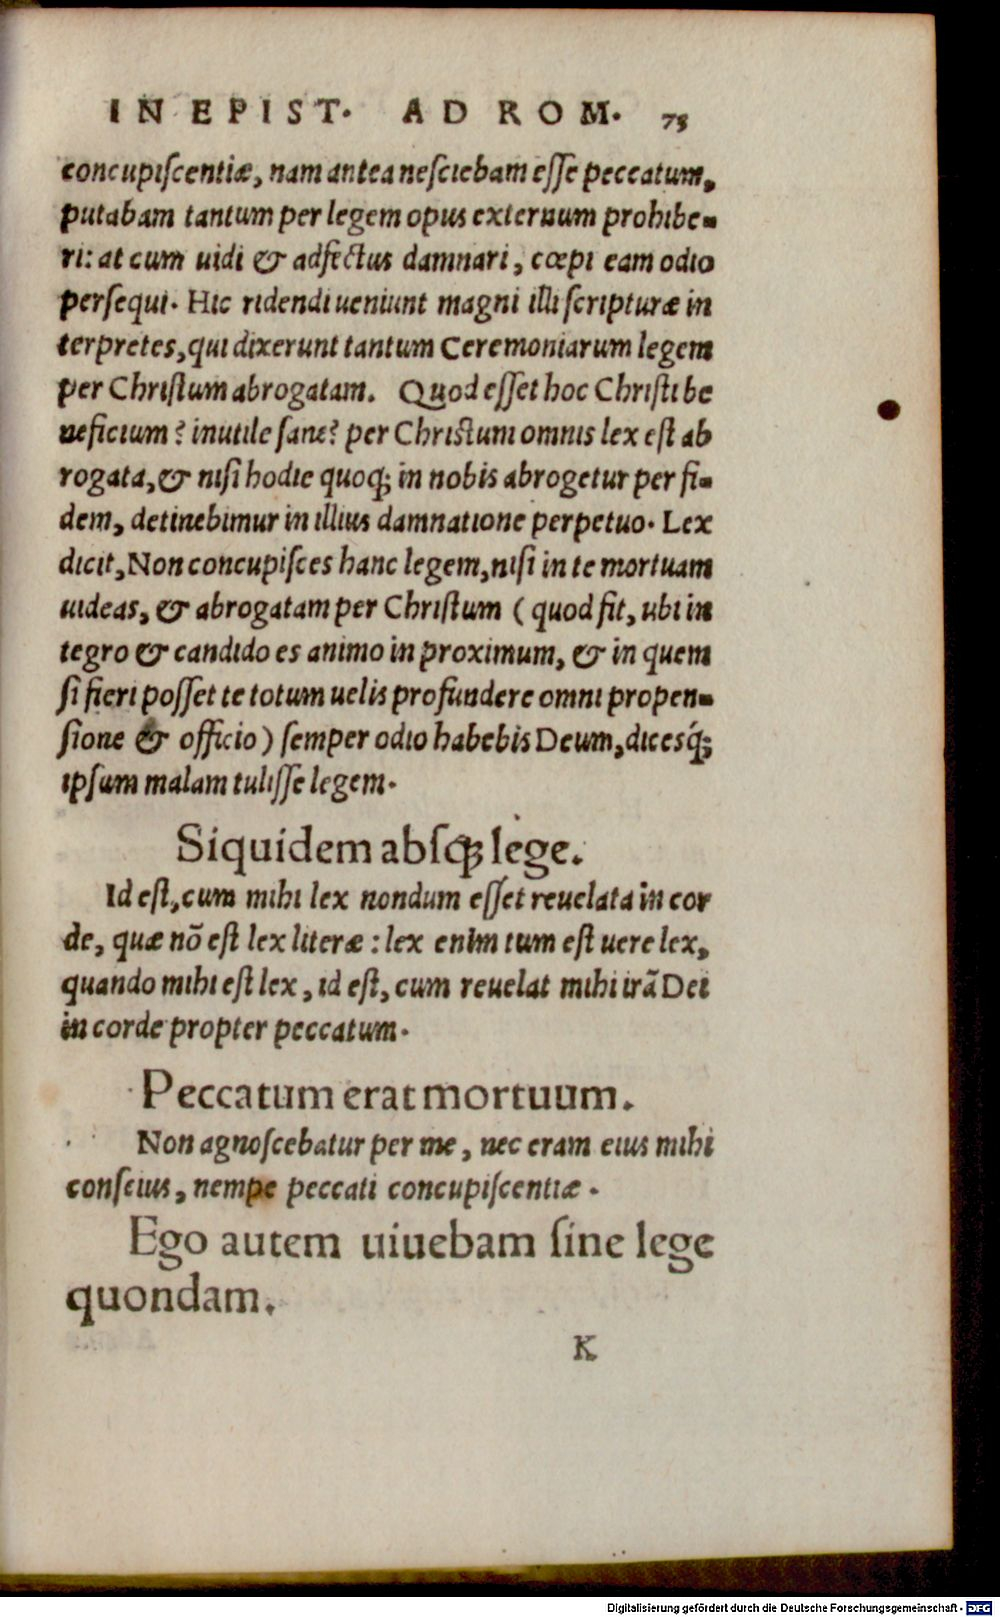 IN EPIST. AD ROM. 73
concupiſcentiæ, nam antea neſciebam eſſe peccatum,
putabam tantum per legem opus externum prohibe-
ri: at cum uidi & adfectus damnari, cœpi eam odio
perſequi. Hic ridendi ueniunt magni illi ſcripturæ in
terpretes, qui dixerunt tantum Ceremoniarum legem
per Chriſtum abrogatam. Quod eſſet hoc Chriſti be
neficium? inutile ſane? per Chriſtum omnis lex eſt ab
rogata, & niſi hodie quoq; in nobis abrogetur per fi-
dem, detinebimur in illius damnatione perpetuo. Lex
dicit, Non concupiſces hanc legem, niſi in te mortuam
uideas, & abrogatam per Chriſtum ( quod fit, ubi in
tegro & candido es animo in proximum, & in quem
ſi fieri poſſet te totum uelis profundere omni propen-
ſione & officio ) ſemper odio habebis Deum, diceśq;
ipſum malam tuliſſe legem.
Siquidem abſq; lege.
Id eſt, cum mihi lex nondum eſſet reuelata in cor
de, quæ nō eſt lex literæ : lex enim tum eſt uere lex,
quando mihi eſt lex, id eſt, cum reuelat mihi irā Dei
in corde propter peccatum.
Peccatum erat mortuum.
Non agnoſcebatur per me, nec eram eius mihi
conſcius, nempe peccati concupiſcentiæ.
Ego autem uiuebam ſine lege
quondam.
K
Digitalisierung gefördert durch die Deutsche Forschungsgemeinschaft - DFG